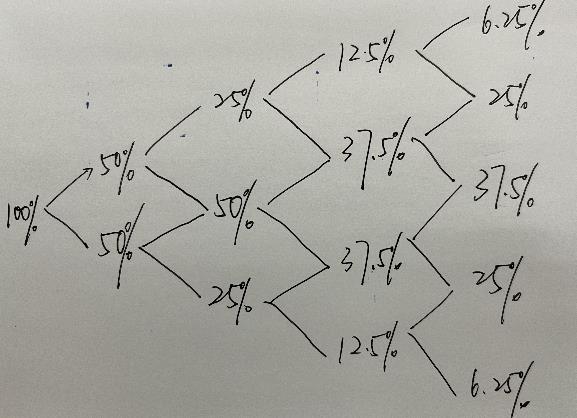 100%
50%
50%
25%
50%
25%
12.5%
37.5%
37.5%
12.5%
6.25%
25%
37.5%
25%
6.25%